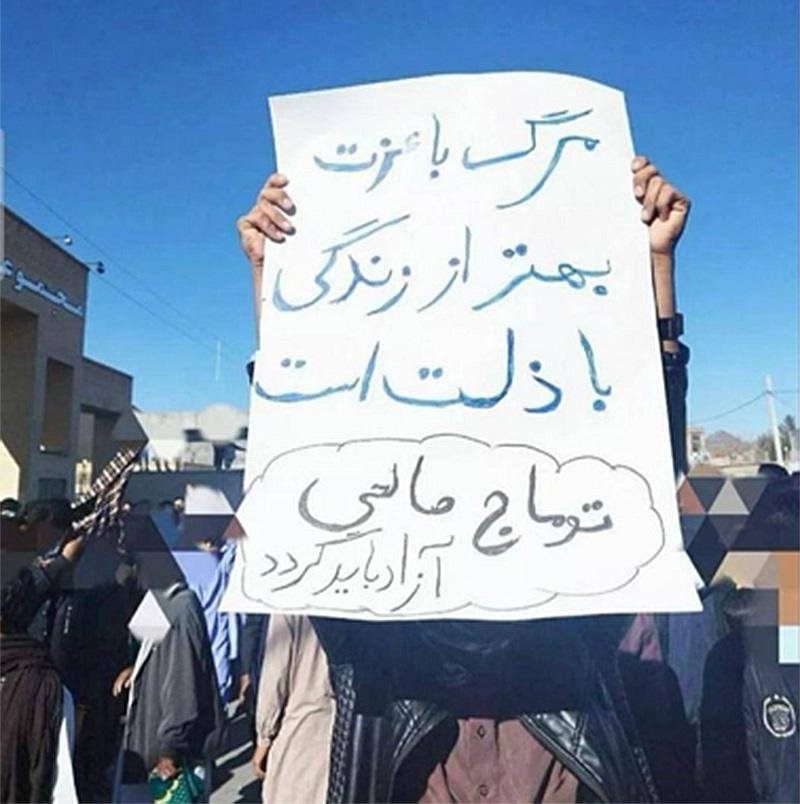 مرگ با عزت
بهتر از زندگی
با ذلت است
توماج صالحی
آزاد باید گردد
مجموعه